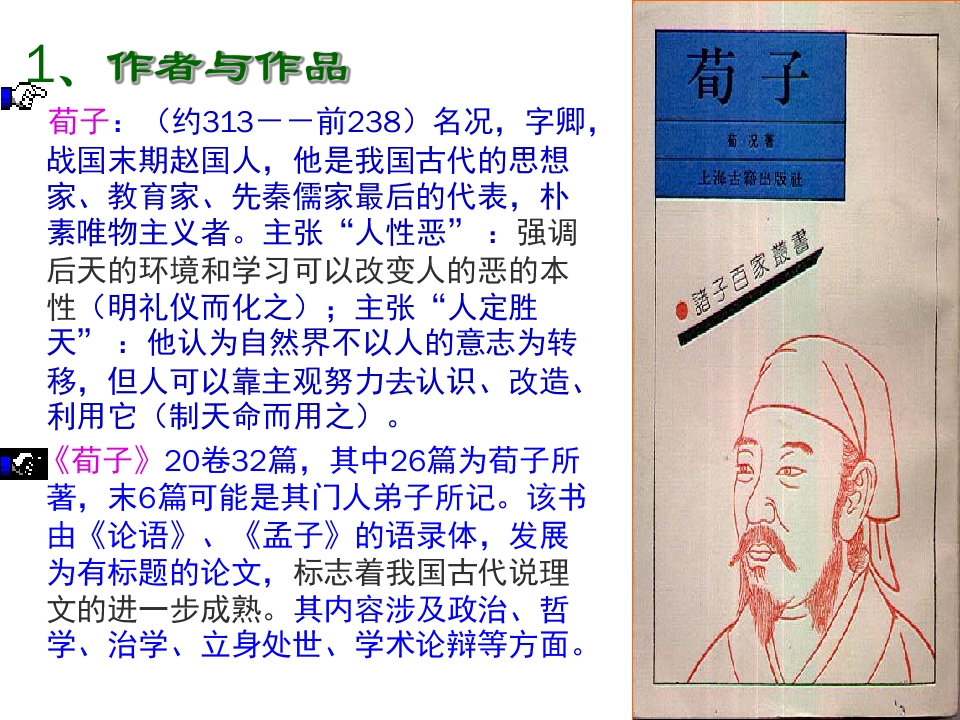 1、作者与作品
荀子：（约313－－前238）名况，字卿，
战国末期赵国人，他是我国古代的思想
家、教育家、先秦儒家最后的代表，朴
素唯物主义者。主张“人性恶”：强调
后天的环境和学习可以改变人的恶的本
性（明礼仪而化之）；主张“人定胜
天”：他认为自然界不以人的意志为转
移，但人可以靠主观努力去认识、改造、
利用它（制天命而用之）。
《荀子》20卷32篇，其中26篇为荀子所
著，末6篇可能是其门人弟子所记。该书
由《论语》、《孟子》的语录体，发展
为有标题的论文，标志着我国古代说理
文的进一步成熟。其内容涉及政治、哲
学、治学、立身处世、学术论辩等方面。
荀子
荀况著
上海古籍出版社
諸子百家叢書